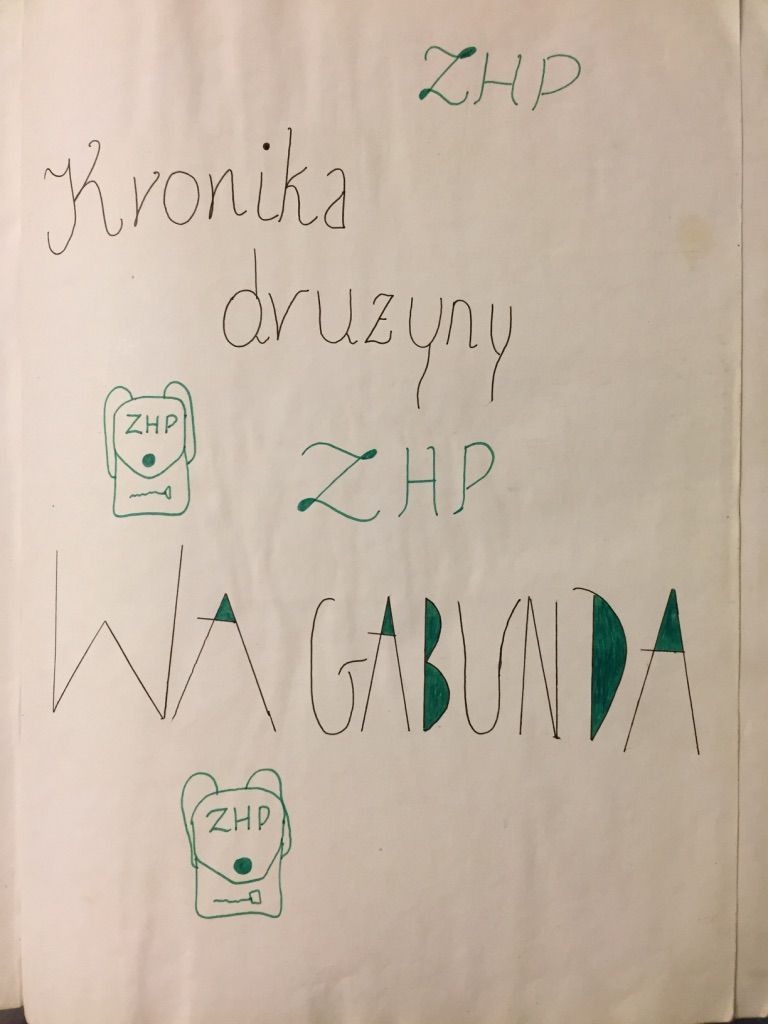 ZHP
Kronika
druzyny
ZHP
ZHP
WAGABUNDA
ZHP